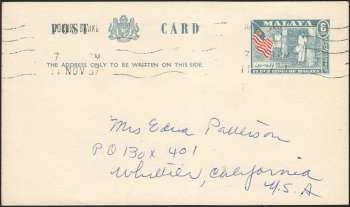 POST CARD
THE ADDRESS ONLY TO BE WRITTEN ON THIS SIDE.
11 NOV 57
MALAYA
6
Mrs Edna Patterson
P O Box 401
Whittier, California
U.S.A